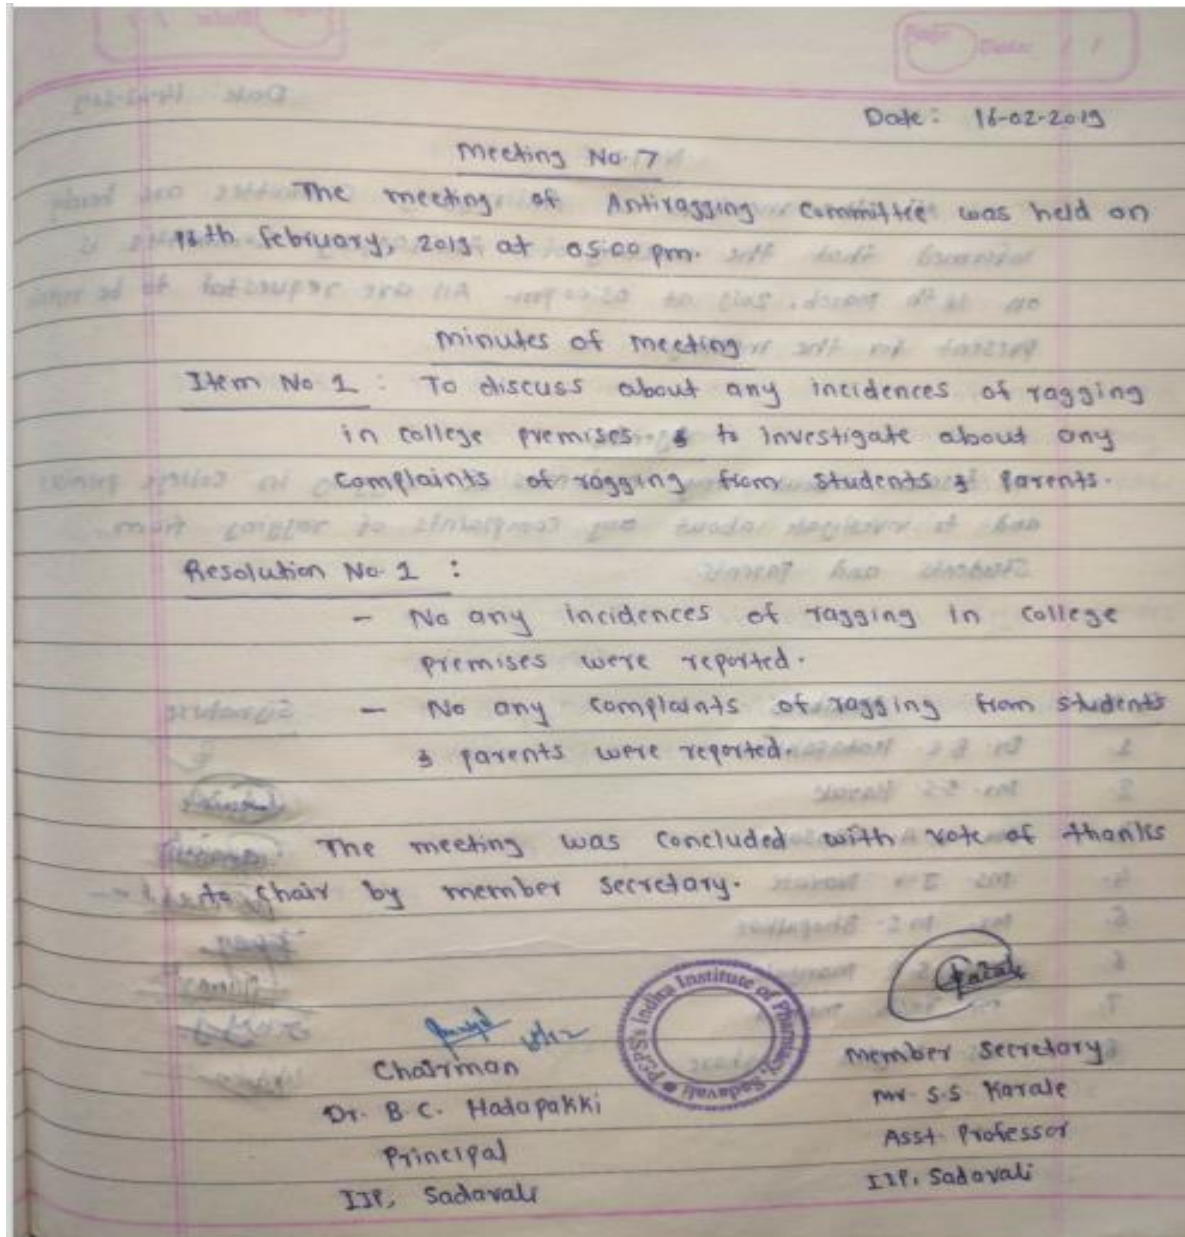 Date: 16-02-2019
Meeting No. 7
The meeting of Antiragging Committee was held on
16th February, 2019 at 05:00 pm.
Minutes of Meeting
Item No 1 : To discuss about any incidences of ragging
in college premises & to investigate about any
complaints of ragging from students & Parents.
Resolution No. 1 :
- No any incidences of ragging in college
premises were reported.
- No any complaints of ragging from students
& parents were reported.
The meeting was concluded with vote of thanks
to chair by member secretary.
P.S.P.S's Indira Institute of Pharmacy, Sadavali
Karale
Chairman
Member Secretary
Dr. B. C. Hatapakki
Mr. S.S. Karale
Principal
Asst. Professor
IIP, Sadavali
IIP, Sadavali